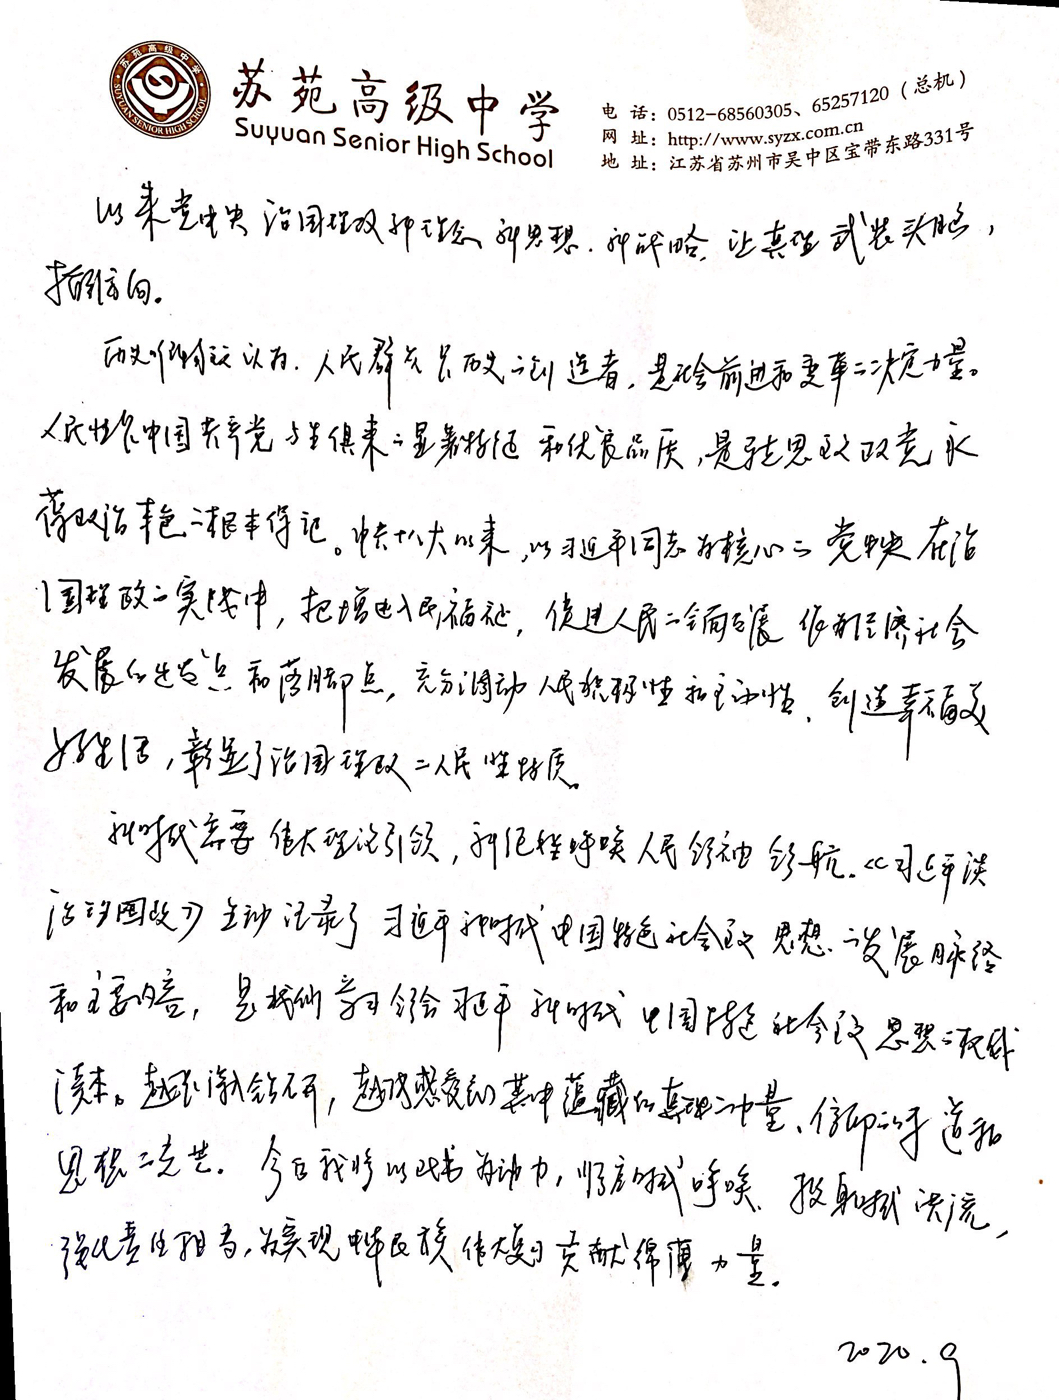 苏苑高级中学
SUYUAN SENIOR HIGH SCHOOL
苏苑高级中学
Suyuan Senior High School
电 话：0512-68560305、65257120（总机）
网 址：http://www.syzx.com.cn
地 址：江苏省苏州市吴中区宝带东路331号
以来党中央治国理政新理念、新思想、新战略，让真理武装头脑，
指明方向。
历史唯物主义认为，人民群众是历史的创造者，是社会前进和变革的决定力量。
人民性是中国共产党与生俱来的显著特征和优良品质，是马克思主义政党永
葆政治本色的根本保证。中共十八大以来，以习近平同志为核心的党中央在治
国理政的实践中，把增进人民福祉，促进人民的全面发展作为经济社会
发展的出发点和落脚点，充分调动人民积极性和主动性，创造幸福美
好生活，彰显了治国理政的人民性特质。
新时代需要伟大理论引领，新征程呼唤人民领袖领航。《习近平谈
治国理政》生动记录了习近平新时代中国特色社会主义思想的发展脉络
和主要内容，是我们学习领会习近平新时代中国特色社会主义思想的权威
读本。越深入钻研，越能感受到其中蕴藏的真理的力量、信仰的味道和
思想的光芒。今后我将以此书为动力，顺应时代呼唤、投身时代洪流，
强化责任担当，为实现中华民族伟大复兴贡献绵薄力量。
2020.9